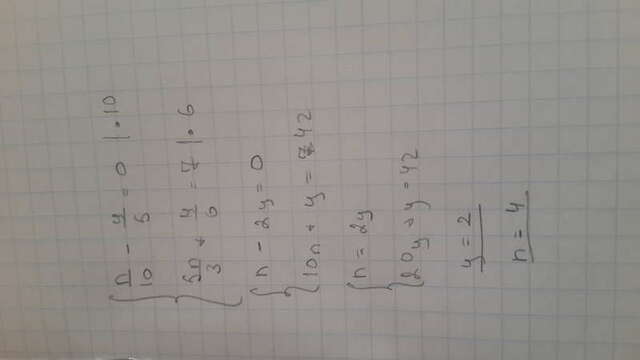 n/10 - y/5 = 0 | • 10
5n/3 + y/6 = 7 | • 6
n - 2y = 0
10n + y = 42
n = 2y
20y + y = 42
y = 2
n = 4